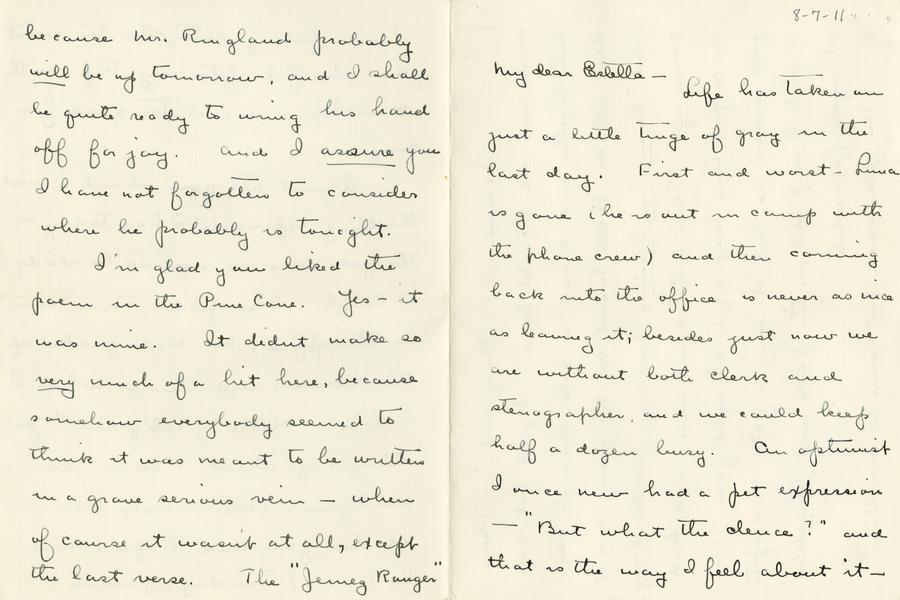 8-7-11
My dear Estella —
Life has taken on
just a little tinge of gray in the
last day. First and worst - Luna
is gone (he is out in camp with
the phone crew) and then coming
back into the office is never as nice
as leaving it; besides just now we
are without both clerk and
stenographer, and we could keep
half a dozen busy. An optimist
I once new had a pet expression
— "But what the deuce?" and
that is the way I feel about it —
because Mr. Ringland probably
will be up tomorrow, and I shall
be quite ready to wring his hand
off for joy. And I assure you
I have not forgotten to consider
where he probably is tonight.
I'm glad you liked the
poem in the Pine Cone. Yes - it
was mine. It didn't make so
very much of a hit here, because
somehow everybody seemed to
think it was meant to be written
in a grave serious vein — when
of course it wasn't at all, except
the last verse. The "Jemez Ranger"